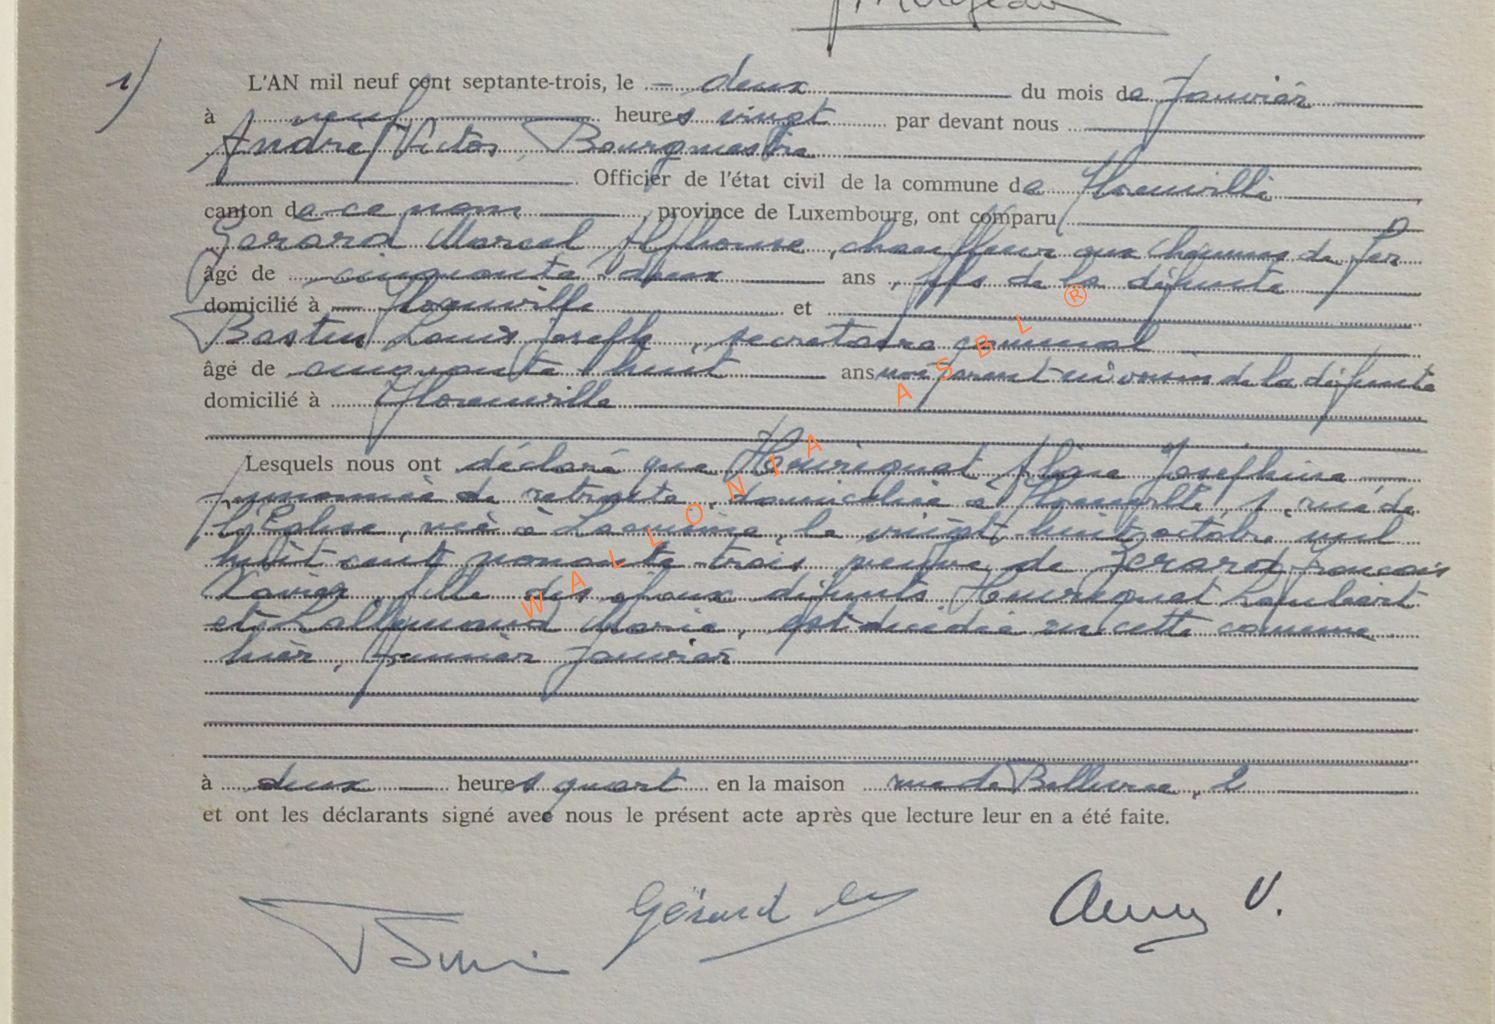 1)
L'AN mil neuf cent septante-trois, le deux du mois de Janvier
à neuf heures vingt par devant nous
André Victor, Bourgmestre
Officier de l'état civil de la commune de Florenville
canton de ce nom, province de Luxembourg, ont comparu
Gerard Marcel Alphonse, chauffeur aux chemins de fer
âgé de cinquante deux ans, fils de la défunte
domicilié à Florenville et
Bastin Louis Joseph, secrétaire communal
âgé de cinquante huit ans non parent ni voisin de la défunte
domicilié à Florenville
Lesquels nous ont déclaré que Henriquet Aline Joséphine
pensionnée de retraite, domiciliée à Florenville, 1, rue de
l'Eglise, née à Lacuisine, le vingt-huit octobre mil
huit cent nonante-trois veuve de Gerard François
Xavier, fille des époux défunts Henriquet Lambert
et Lallemand Marie, est décédée en cette commune
hier, premier Janvier
à deux heures quart en la maison rue de Bellevue, 2
et ont les déclarants signé avec nous le présent acte après que lecture leur en a été faite.
Gérard
V.
WALLONIA ASBL ®